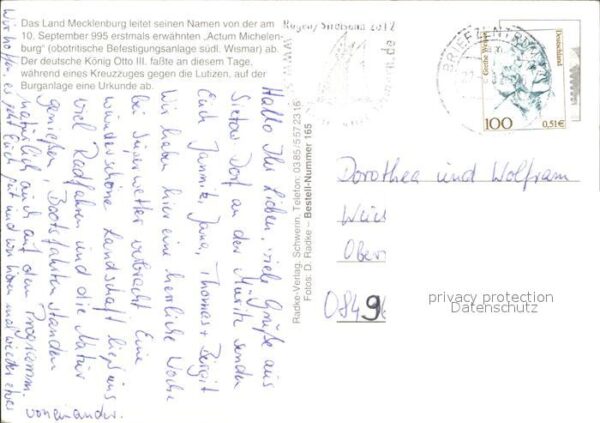 Das Land Mecklenburg leitet seinen Namen von der am
10. September 995 erstmals erwähnten „Actum Michelen-
burg" (obotritische Befestigungsanlage südl. Wismar) ab.
Der deutsche König Otto III. faßte an diesem Tage,
während eines Kreuzzuges gegen die Lutizen, auf der
Burganlage eine Urkunde ab.
Hallo Ihr Lieben, viele Grüße aus
Sietow Dorf an der Müritz senden
Euch Jannik, Jana, Thomas + Birgit
Wir haben hier eine herrliche Woche
bei Superwetter verbracht. Eine
wunderschöne Landschaft ließ uns
viel Radfahren und die Natur
genießen, Bootsfahrten standen
natürlich auch auf dem Programm.
Wir hoffen, es geht Euch gut und wir hören mal wieder etwas
voneinander.
Radke-Verlag, Schwerin, Telefon: 0385/5572316
Fotos: D. Radke – Bestell-Nummer 165
BRIEFZENTRUM
Deutschland
100
0,51€
Dorothea und Wolfram
Weis
Ober
0849
privacy protection
Datenschutz